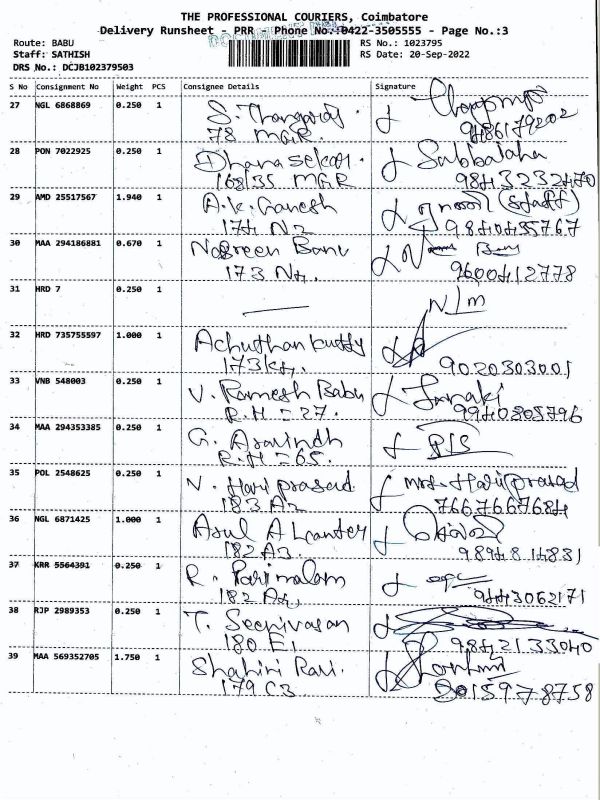 THE PROFESSIONAL COURIERS, Coimbatore
Delivery Runsheet - PRR - Phone No.:0422-3505555 - Page No.:3
Route: BABU RS No.: 1023795
Staff: SATHISH RS Date: 20-Sep-2022
DRS No.: DCJB102379503
S No Consignment No Weight PCS Consignee Details Signature
27 NGL 6868869 0.250 1 S. Thangaraj.
78 MGR. 9486179202
28 PON 7022925 0.250 1 Dhanasekar. Sabbalaha
168/35 MGR 9843232470
29 AMD 25517567 1.940 1 A.K. Ganesh
174 N2 9840435767
30 MAA 294186881 0.670 1 Nasreen Banu
173 N4. 9600412778
31 HRD 7 0.250 1 NLM
32 HRD 735755597 1.000 1 Achuthan kutty
173 K4. 9020303001
33 VNB 548003 0.250 1 V. Ramesh Babu Janaki
R.H = 27. 9940805796
34 MAA 294353385 0.250 1 G. Aravindh
R.H = 65.
35 POL 2548625 0.250 1 N. Hari prasad. Mrs. Hari prasad
183 A2 7667667684
36 NGL 6871425 1.000 1 Asul A Lawter
182 A3. 9894814831
37 KRR 5564391 0.250 1 R. Parimalam
182 A4, 9443062171
38 RJP 2989353 0.250 1 T. Seenivasan
180 E1 9842133040
39 MAA 569352705 1.750 1 Shahini Ravi.
179 C3 9015978758